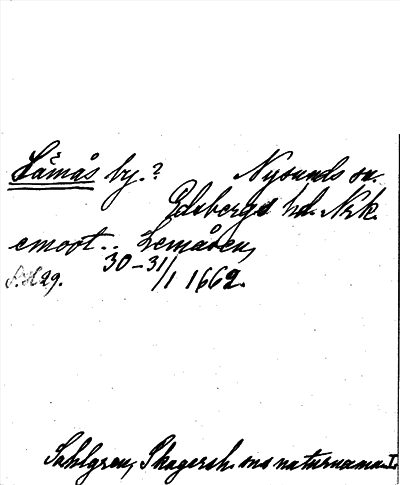 Låmås by.? Nysunds sn.
Edsbergs hd. Nrk.
emoot .. Lemåsen,
30-31/1 1662.
S.H 29.
Sahlgren, Skagersh. sns naturnamn I.